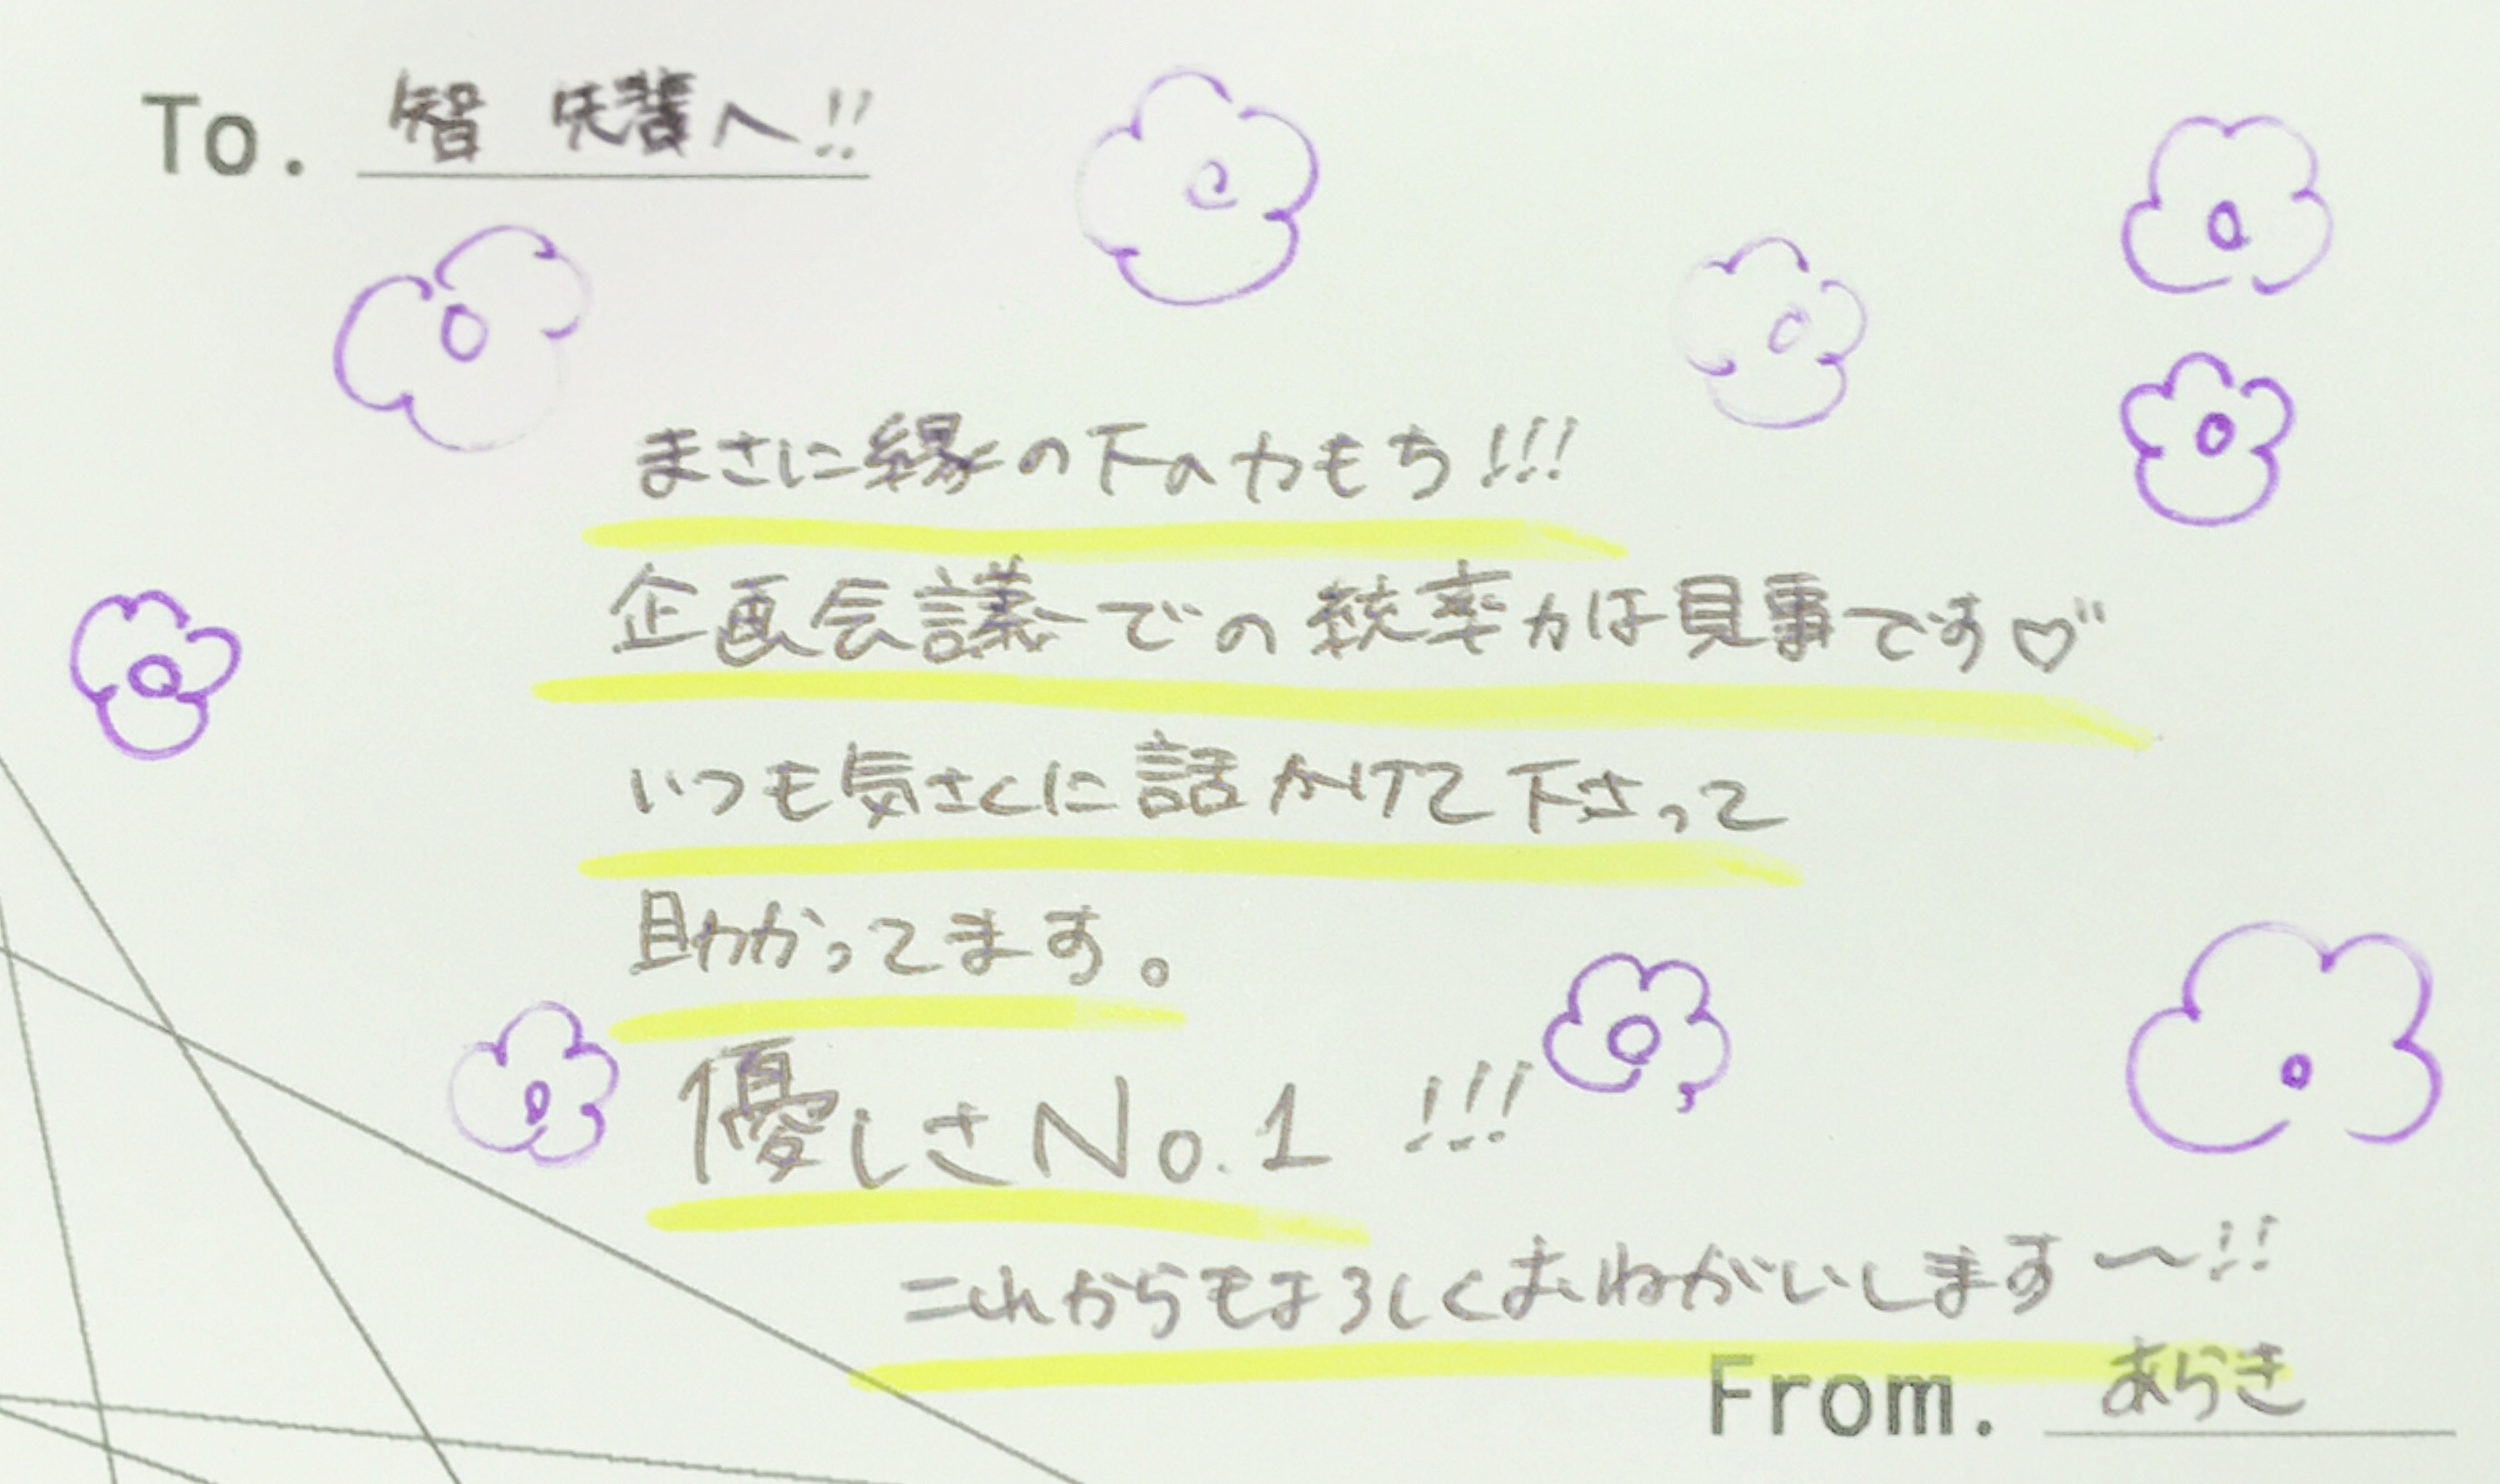 To. 智 先輩へ!!
まさに縁の下の力もち!!!
企画会議での統率力は見事です♡"
いつも気さくに話かけて下さって
助かってます。
優しさNo.1 !!!
これからもよろしくおねがいします〜!!
From. あらき